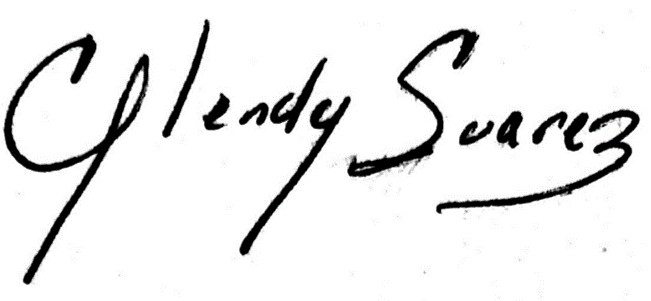 Glendy Suarez